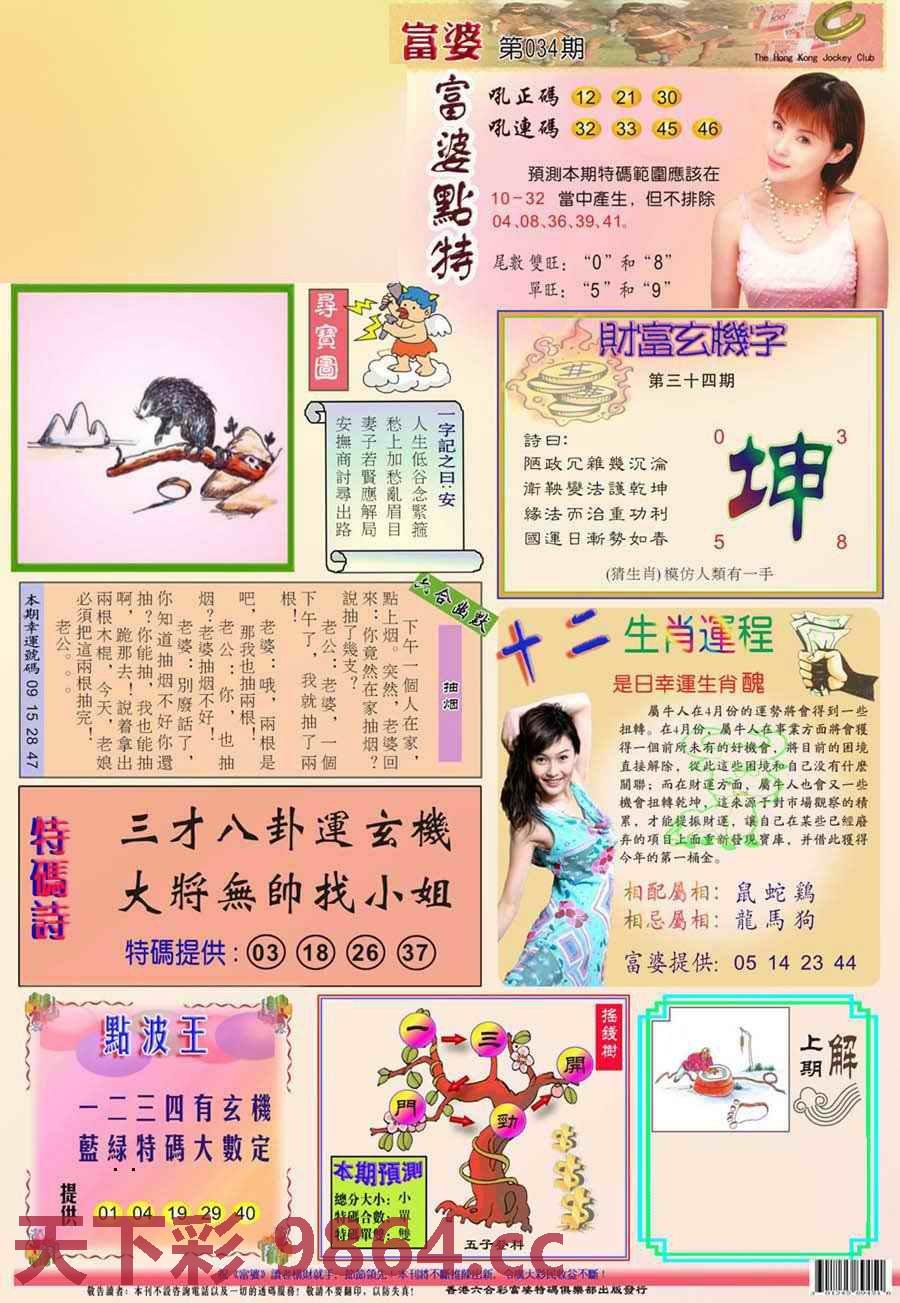 富婆 第034期
The Hong Kong Jockey Club
富婆點特
吼正碼 12 21 30
吼連碼 32 33 45 46
預測本期特碼範圍應該在
10-32 當中產生，但不排除
04、08、36、39、41。
尾數雙旺：“0”和“8”
單旺：“5”和“9”
尋寶圖
一字記之曰：安
人生低谷念緊箍
愁上加愁亂眉目
妻子若賢應解局
安撫商討尋出路
財富玄機字
第三十四期
詩曰：
陋政冗雜幾沉淪
衛鞅變法護乾坤
緣法而治重功利
國運日漸勢如春
0 3
坤
5 8
(猜生肖)模仿人類有一手
六合幽默
抽烟
下午一個人在家，
點上烟。突然，老婆回
來：你竟然在家抽烟？
說抽了幾支？
老公：老婆，一個
下午了，我就抽了兩
根！
老婆：哦，兩根是
吧，那我也抽兩根！
老公：你，也抽
烟？老婆抽烟不好！
老婆：別廢話了，
你知道抽烟不好你還
抽？你能抽，我也能抽
啊，跪那去！說着拿出
兩根木棍，今天，老娘
必須把這兩根抽完！
老公。。。
本期幸運號碼 09 15 28 47
十二生肖運程
是日幸運生肖醜
屬牛人在4月份的運勢將會得到一些
扭轉。在4月份，屬牛人在事業方面將會獲
得一個前所未有的好機會，將目前的困境
直接解除，從此這些困境和自己沒有什麼
關聯；而在財運方面，屬牛人也會又一些
機會扭轉乾坤，這來源于對市場觀察的積
累，才能提振財運，讓自己在某些已經廢
弃的項目上面重新發現寶庫，并借此獲得
今年的第一桶金。
相配屬相：鼠蛇鷄
相忌屬相：龍馬狗
富婆提供：05 14 23 44
特碼詩
三才八卦運玄機
大將無帥找小姐
特碼提供：03 18 26 37
點波王
一二三四有玄機
藍綠特碼大數定
提供 01 04 19 29 40
搖錢樹
一 三 開 門 勁
本期預測
總分大小：小
特碼合數：單
特碼單雙：雙
五子登科
上期解
天下彩 9864.cc
祝《富婆》讀者橫財就手，節節領先！本刊將不斷推陳出新，令廣大彩民收益不斷！
敬告讀者：本刊不設咨詢電話以及一切的透碼服務！敬請不要翻印，以防失真！
香港六合彩富婆特碼俱樂部出版發行